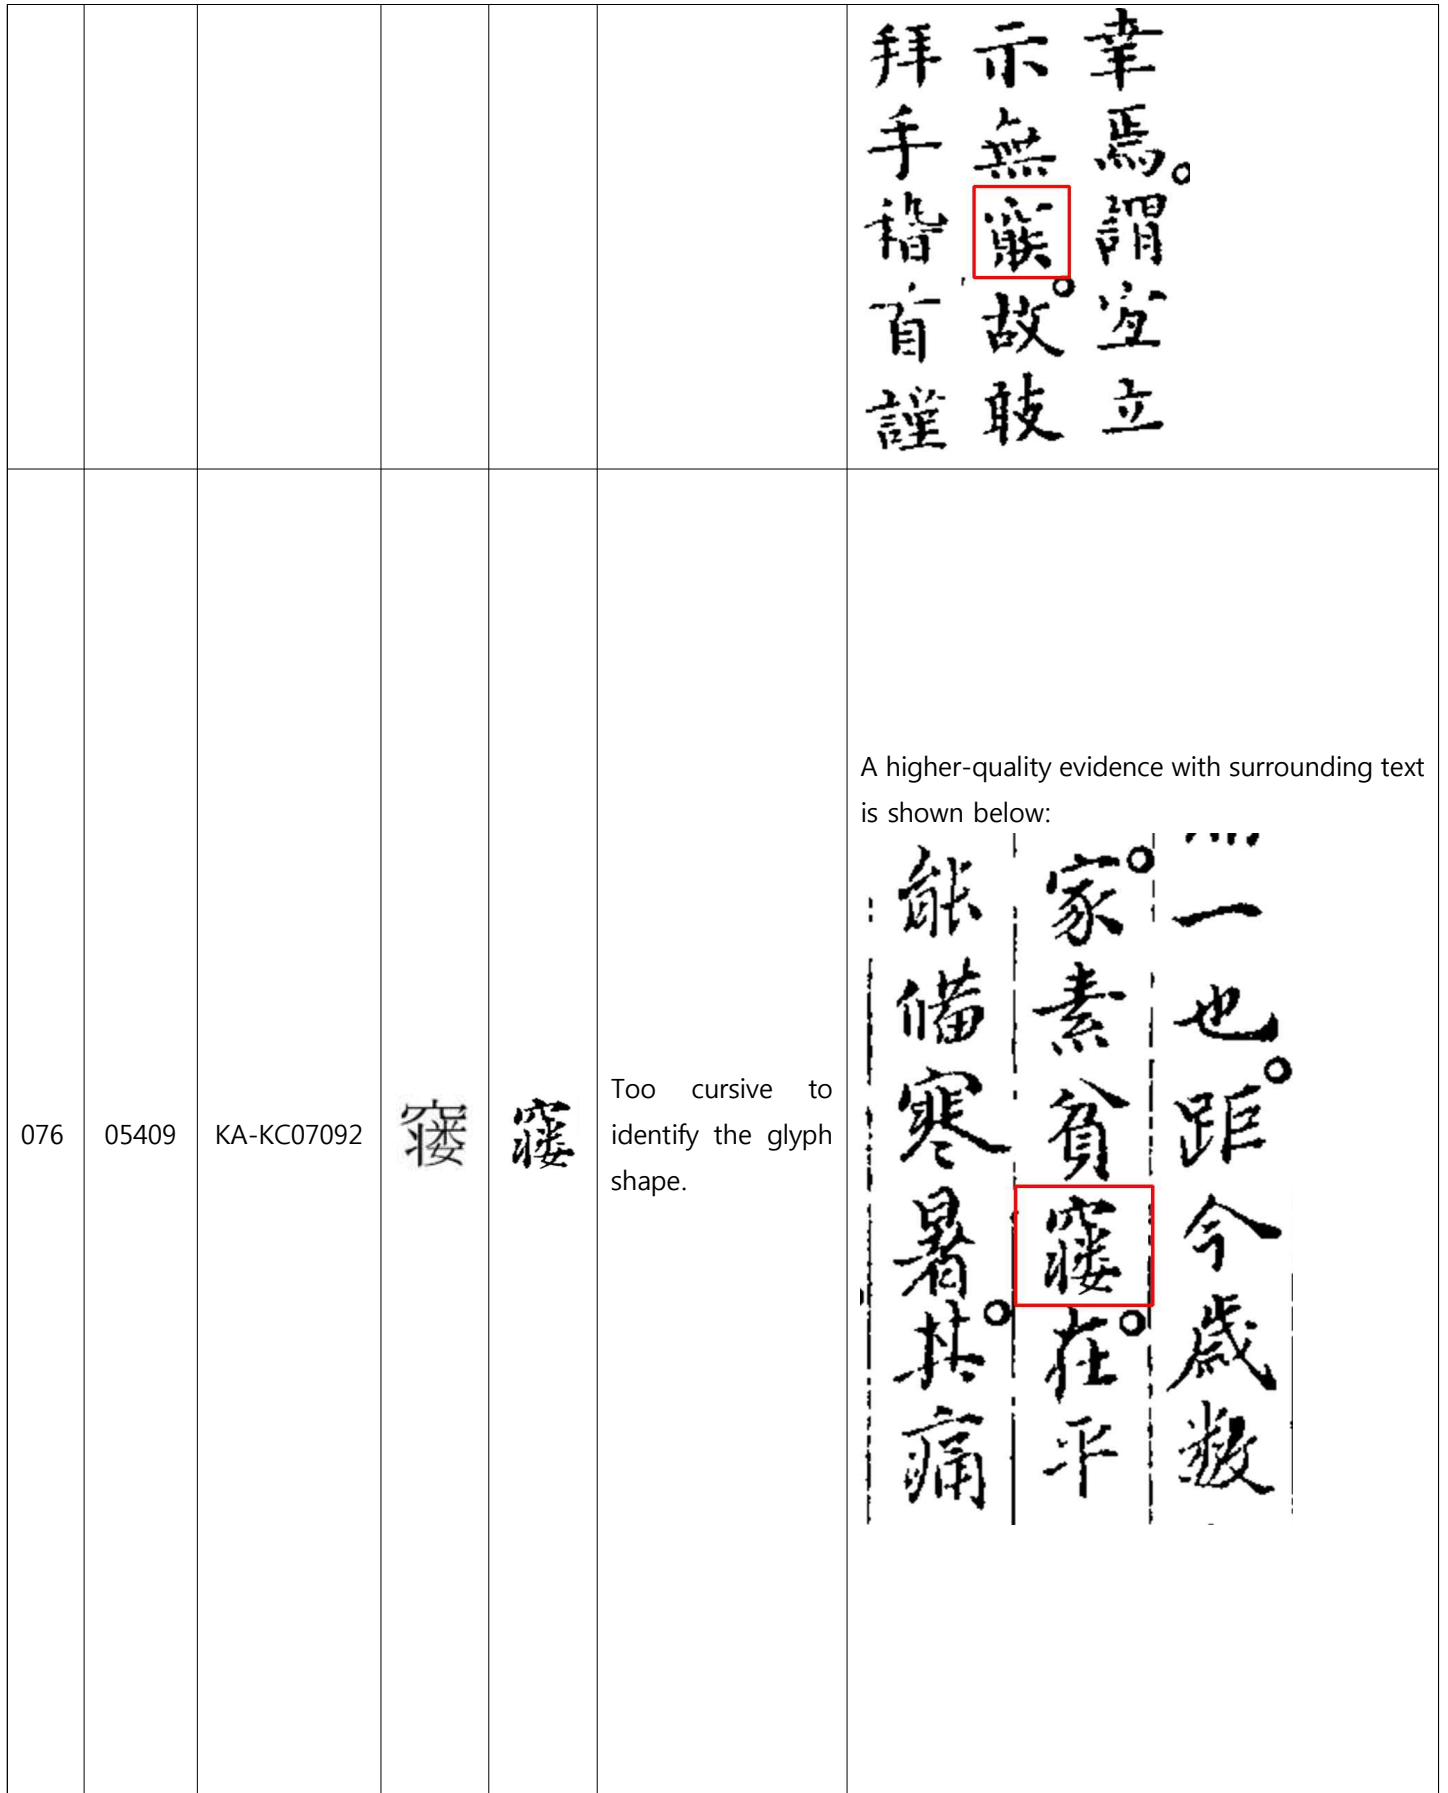 幸焉。謂宜立
示無。故敢
拜手稽首謹
076
05409
KA-KC07092
Too cursive to
identify the glyph
shape.
A higher-quality evidence with surrounding text
is shown below:
一也。距今歲數
。家素貧。在平
能備寒暑。其痛